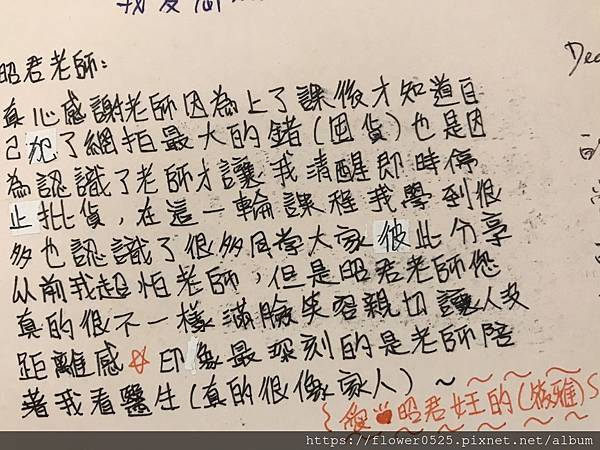 昭君老師：
真心感謝老師因為上了課後才知道自
己犯了網拍最大的錯(囤貨)也是因
為認識了老師才讓我清醒即時停
止批貨，在這一輪課程我學到很
多也認識了很多同學大家彼此分享
以前我超怕老師，但是昭君老師您
真的很不一樣滿臉笑容親切讓人沒
距離感☆印象最深刻的是老師陪
著我看醫生(真的很像家人)～
愛❤昭君女王的(筱雅)
Dea
https://flower0525.pixnet.net/album